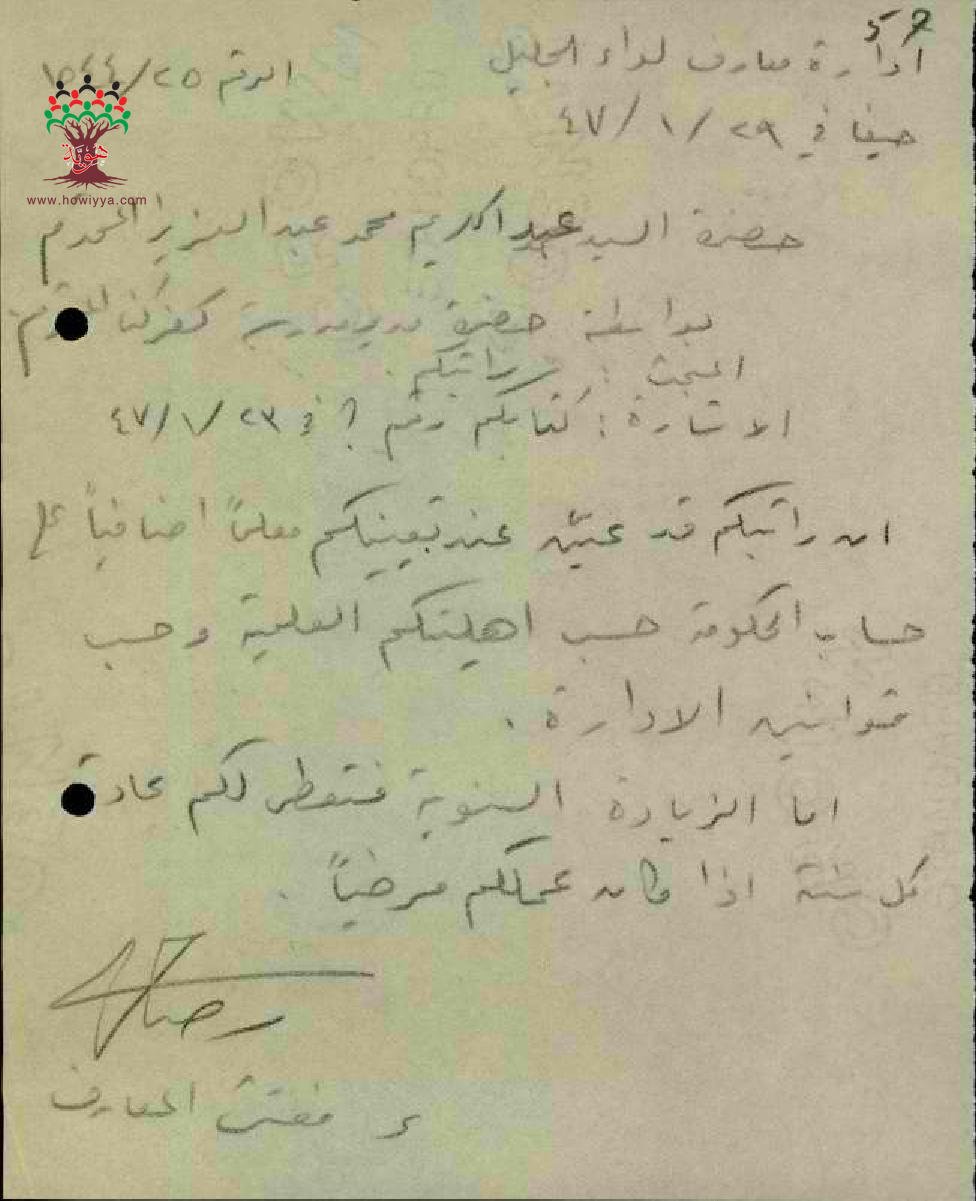 ٥٢
ادارة معارف لواء الجليل الرقم ١٥٤٤/٢٥
حيفا في ٢٩/١/٤٧
هوية
www.howiyya.com
حضرة السيد عبد الكريم محمد عبد العزيز المحترم
بواسطة حضرة مدير مدرسة كفركنا المحترم
المبحث : راتبكم .
الاشارة : كتابكم رقم ؟ في ٢٣/١/٤٧
ان راتبكم قد عيّن عند تعيينكم معلماً اضافياً على
حساب الحكومة حسب اهليتكم العلمية وحسب
قوانين الادارة .
اما الزيادة السنوية فتعطى لكم عادة
كل سنة اذا كان عملكم مرضياً .
ع مفتش المعارف